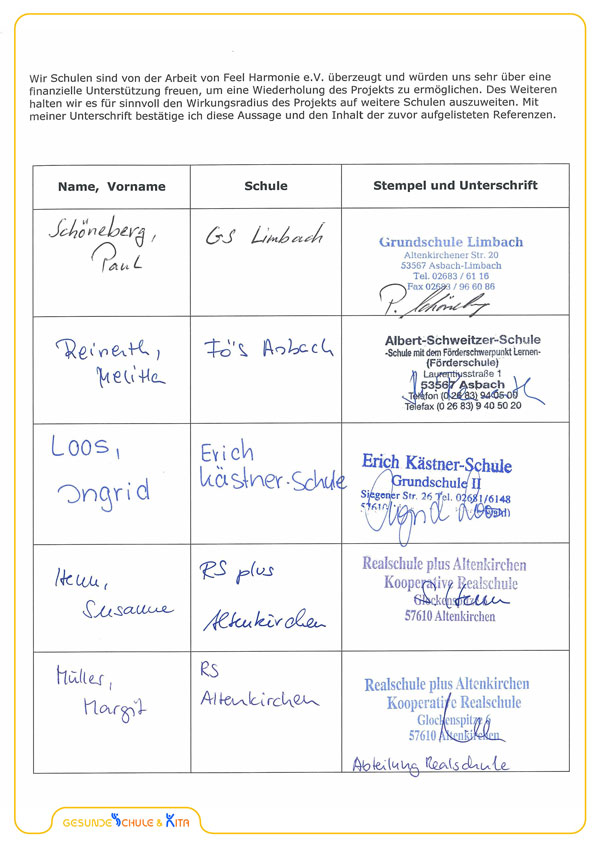 Wir Schulen sind von der Arbeit von Feel Harmonie e.V. überzeugt und würden uns sehr über eine
finanzielle Unterstützung freuen, um eine Wiederholung des Projekts zu ermöglichen. Des Weiteren
halten wir es für sinnvoll den Wirkungsradius des Projekts auf weitere Schulen auszuweiten. Mit
meiner Unterschrift bestätige ich diese Aussage und den Inhalt der zuvor aufgelisteten Referenzen.
Name, Vorname
Schule
Stempel und Unterschrift
Schöneberg,
Paul
GS Limbach
Grundschule Limbach
Altenkirchener Str. 20
53567 Asbach-Limbach
Tel. 02683 / 61 16
Fax 02683 / 96 60 86
P. Schöneberg
Reinerth,
Melitta
Fö's Asbach
Albert-Schweitzer-Schule
-Schule mit dem Förderschwerpunkt Lernen-
(Förderschule)
Laurentiusstraße 1
53567 Asbach
Telefon (0 26 83) 94 05 00
Telefax (0 26 83) 9 40 50 20
LOOS,
Ingrid
Erich
Kästner-Schule
Erich Kästner-Schule
Grundschule II
Siegener Str. 26 Tel. 02681/6148
57610
Ingrid Loos
Henn,
Susanne
RS plus
Altenkirchen
Realschule plus Altenkirchen
Kooperative Realschule
S. Henn
57610 Altenkirchen
Müller,
Margit
RS
Altenkirchen
Realschule plus Altenkirchen
Kooperative Realschule
Glockenspitze
57610 Altenkirchen
Abteilung Realschule
GESUNDE SCHULE & KITA